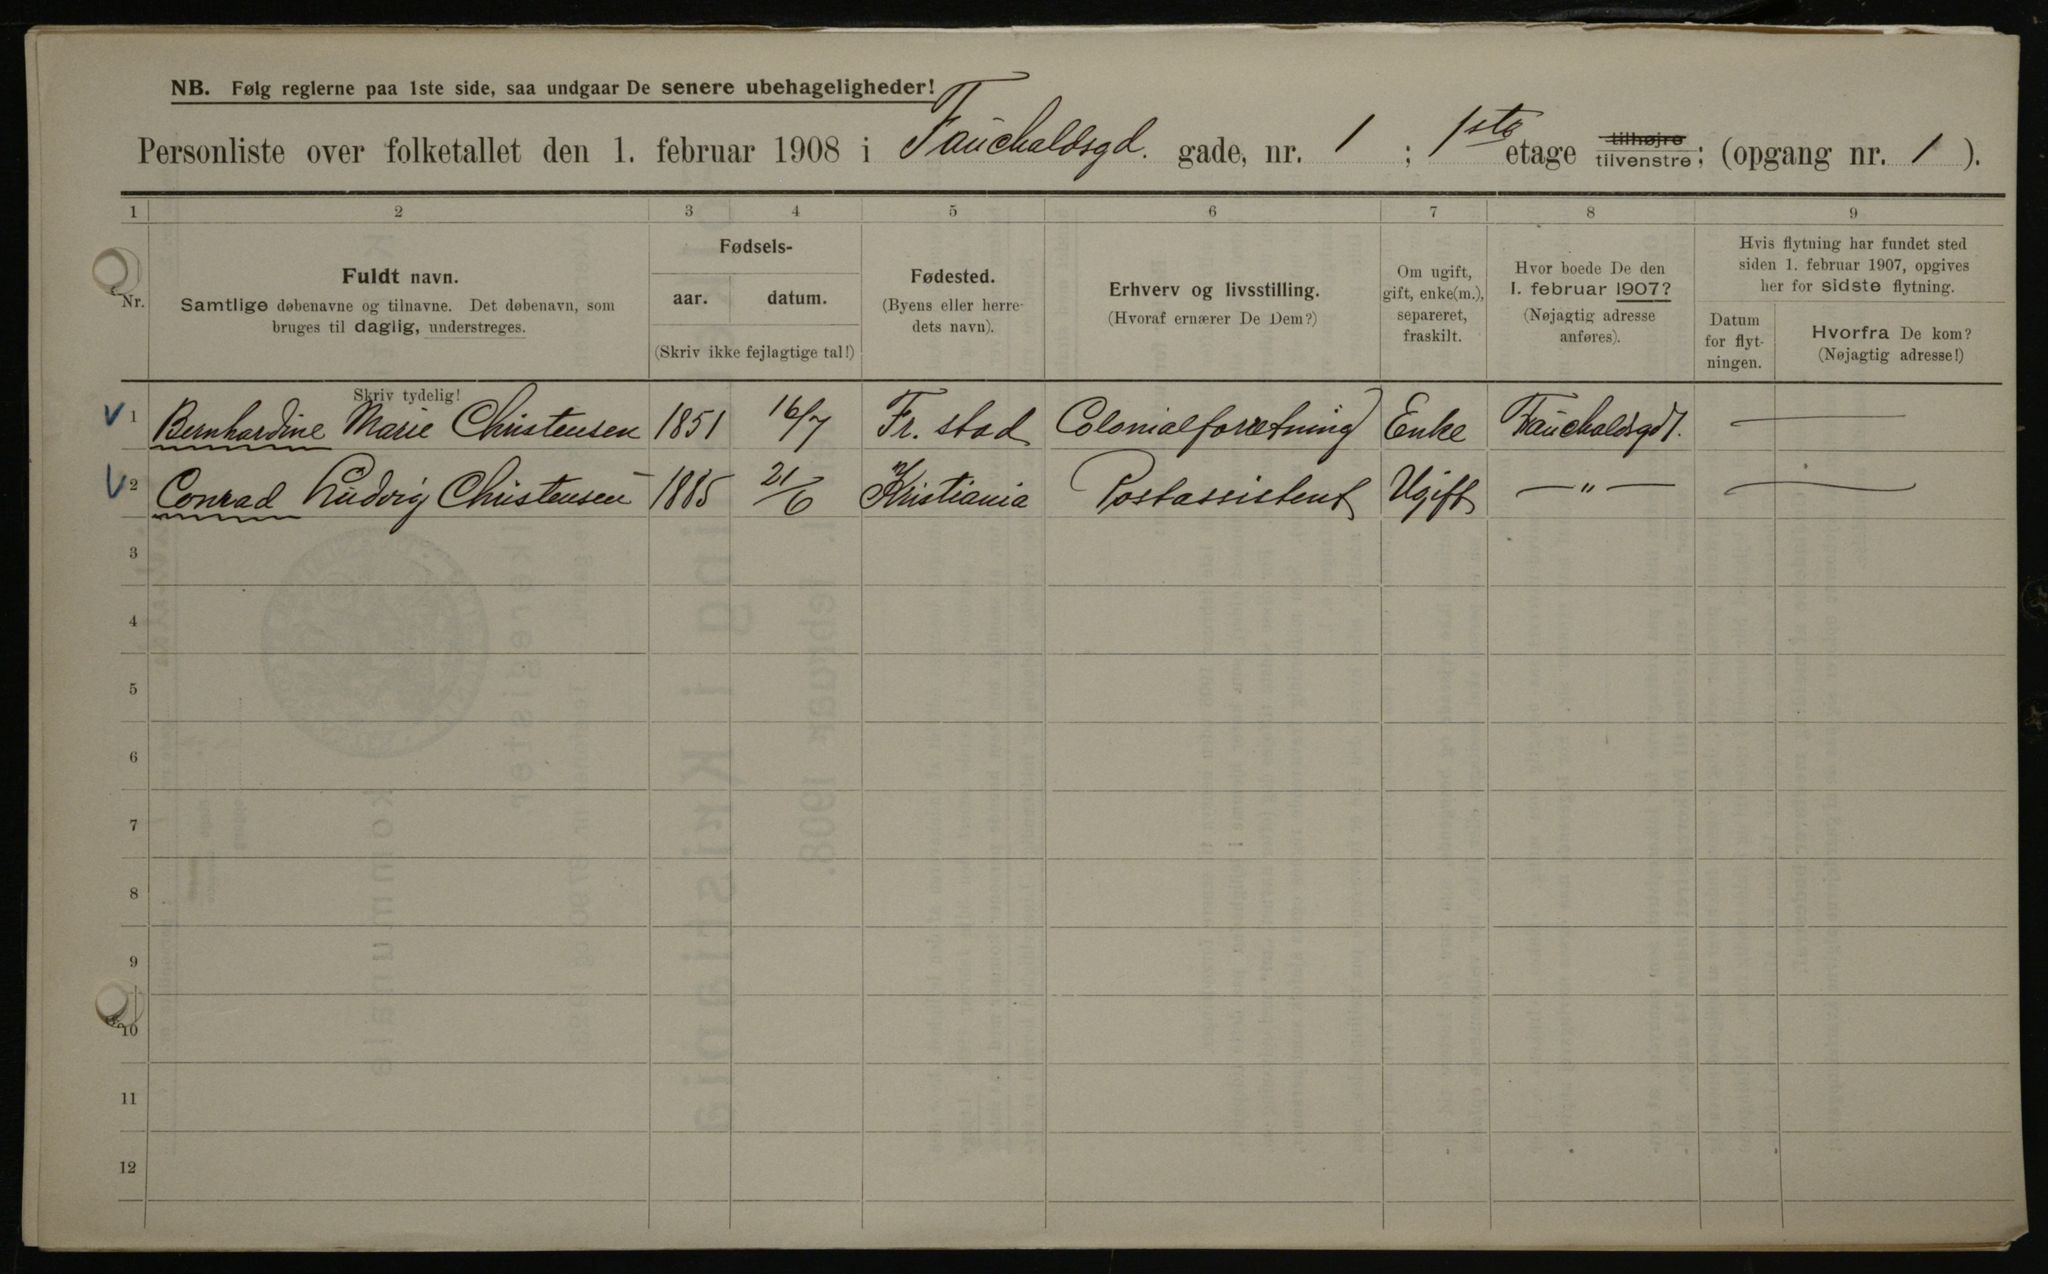 NB. Følg reglerne paa 1ste side, saa undgaar De senere ubehageligheder!
Personliste over folketallet den 1. februar 1908 i Fauchaldsgd. gade, nr. 1 ; 1ste etage tilhøjre tilvenstre; (opgang nr. 1 ).
1 2 3 4 5 6 7 8 9
Nr.
Fuldt navn.
Samtlige døbenavne og tilnavne. Det døbenavn, som
bruges til daglig, understreges.
Skriv tydelig!
Fødsels-
aar. datum.
(Skriv ikke fejlagtige tal!)
Fødested.
(Byens eller herre-
dets navn).
Erhverv og livsstilling.
(Hvoraf ernærer De Dem?)
Om ugift,
gift, enke(m.),
separeret,
fraskilt.
Hvor boede De den
1. februar 1907?
(Nøjagtig adresse
anføres).
Hvis flytning har fundet sted
siden 1. februar 1907, opgives
her for sidste flytning.
Datum
for flyt-
ningen.
Hvorfra De kom?
(Nøjagtig adresse!)
1 Bernhardine Marie Christensen 1851 16/7 Fr. stad Colonialforretning Enke Fauchaldsgd 1. —
2 Conrad Ludvig Christensen 1885 21/6 Kristiania Postassistent Ugift — " — —
3
4
5
6
7
8
9
10
11
12